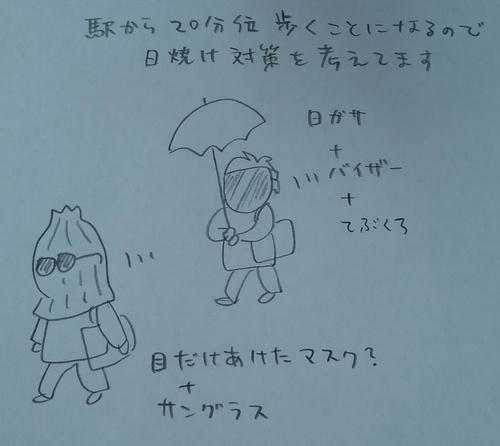 駅から20分位歩くことになるので
日焼け対策を考えてます
日ガサ
+
バイザー
+
てぶくろ
目だけあけたマスク?
+
サングラス